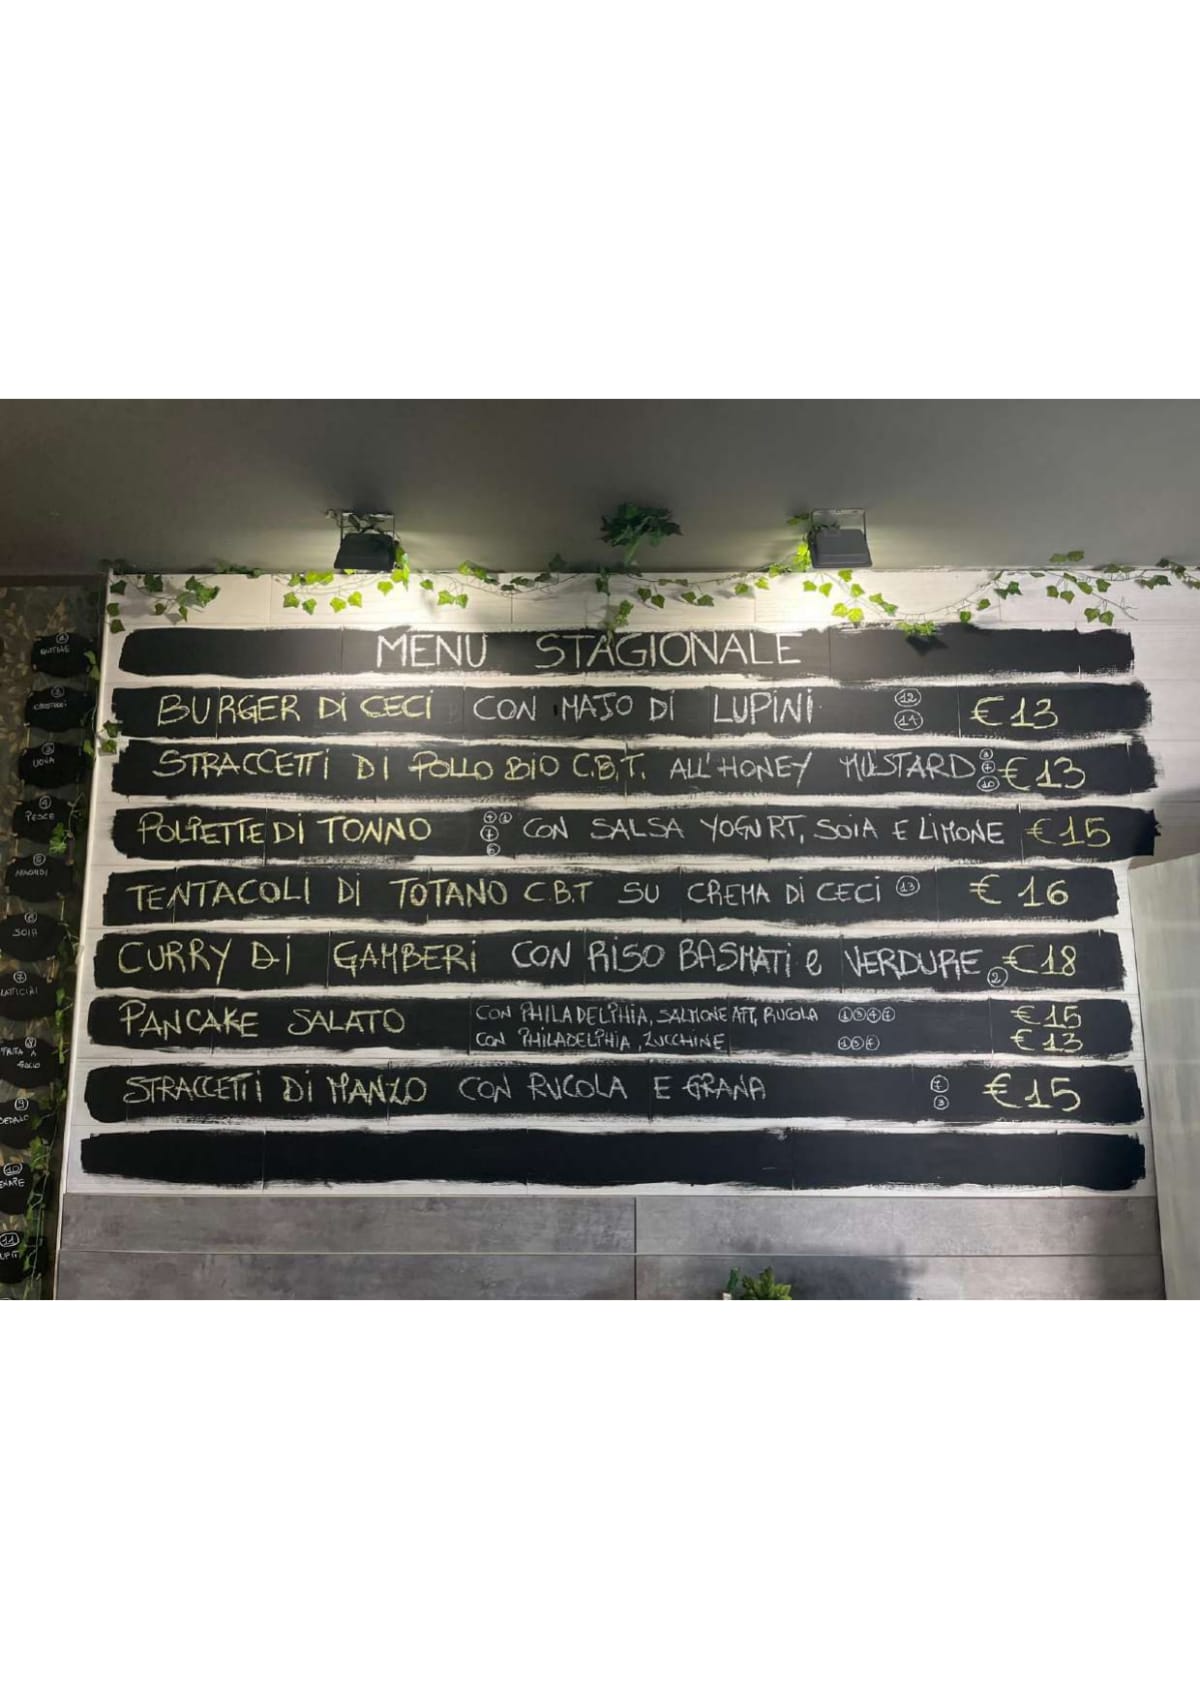 MENU STAGIONALE
BURGER DI CECI CON MAJO DI LUPINI 12 14 €13
STRACCETTI DI POLLO BIO C.B.T. ALL'HONEY MUSTARD 10 €13
POLPETTE DI TONNO CON SALSA YOGURT, SOIA E LIMONE €15
TENTACOLI DI TOTANO C.B.T SU CREMA DI CECI 13 € 16
CURRY DI GAMBERI CON RISO BASMATI e VERDURE 2 €18
PANCAKE SALATO
CON PHILADELPHIA, SALMONE AFF, RUCOLA 1 3 4 7 €15
CON PHILADELPHIA, ZUCCHINE 1 3 7 €13
STRACCETTI DI MANZO CON RUCOLA E GRANA 7 3 €15
3 UOVA
4 PESCE
6 SOIA
7
9
10
11